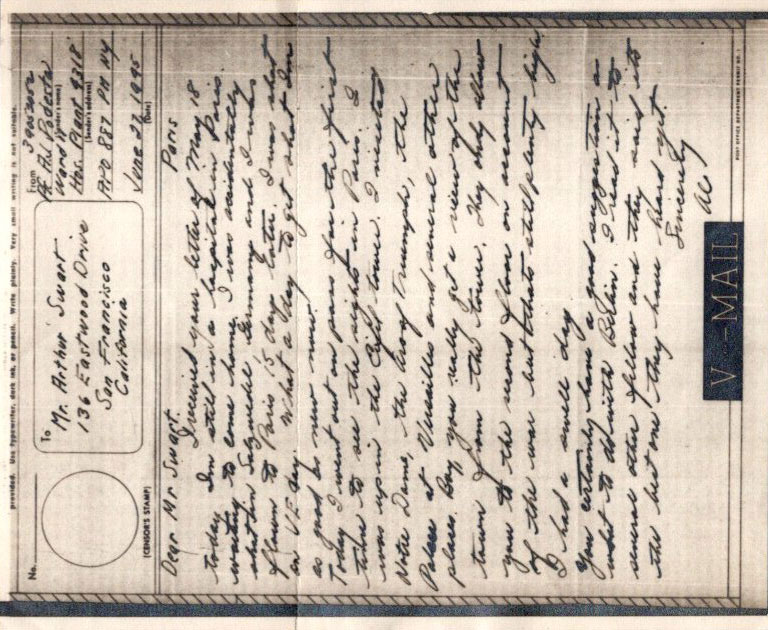 provided. Use typewriter, dark ink, or pencil. Write plainly. Very small writing is not suitable.
No.
(CENSOR'S STAMP)
To
Mr. Arthur Swart
136 Eastwood Drive
San Francisco
California
From
Al Podesta
(Sender's name)
Hos. Plant 4318
(Sender's address)
APO 887 PM NY
June 22 1945
(Date)
Paris
Dear Mr Swart.
I received your letter of May 18
today. Im still in a hospital in Paris.
waiting to come home. I was accidentally
shot in Germany and I was
flown to Paris 15 days later. I was shot
on VE day. What a day to get shot Im
as good as new now.
Today I went out on pass for the first
time to see the sights in Paris. I
was up in the Eifel tower. I visited
Notre Dame, the Arch of Triumph, the
Palace at Versailles and several other
places. Boy you really get a view of the
town from the tower. They only allow
you to the second floor on account
of the war but thats still plenty high
I had a swell day
You certainly have a good suggestion on
what to do with Berlin. I read it to
several other fellows and they said its
the best one they have heard yet.
Sincerely
Al.
V-MAIL
POST OFFICE DEPARTMENT PERMIT NO. 1